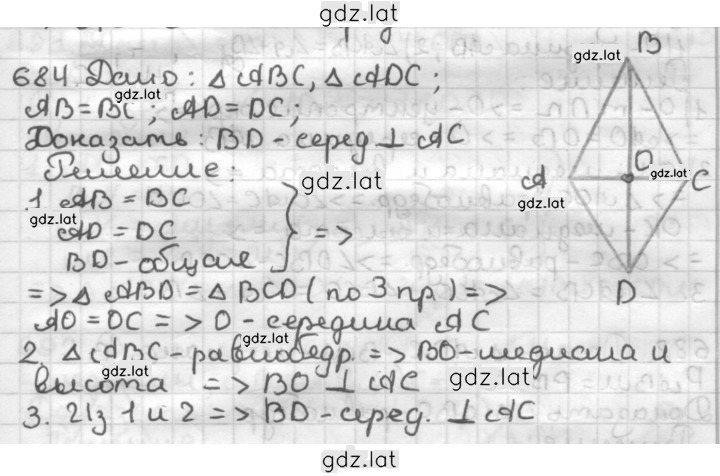 gdz.lat
684. Дано: △ABC, △ADC;
gdz.lat
AB=BC; AD=DC;
Доказать: BD-серед. ⊥ AC
Решение:
gdz.lat
1 AB = BC
gdz.lat
AD = DC
BD-общая
} =>
=> △ ABD = △ BCD (по 3 пр) =>
AO = OC => O - середина AC
gdz.lat
2. △ABC-равнобедр. => BO-медиана и
gdz.lat
высота => BO ⊥ AC
gdz.lat
3. Из 1 и 2 => BD-серед. ⊥ AC
B
gdz.lat
A
O
gdz.lat
C
gdz.lat
D
gdz.lat